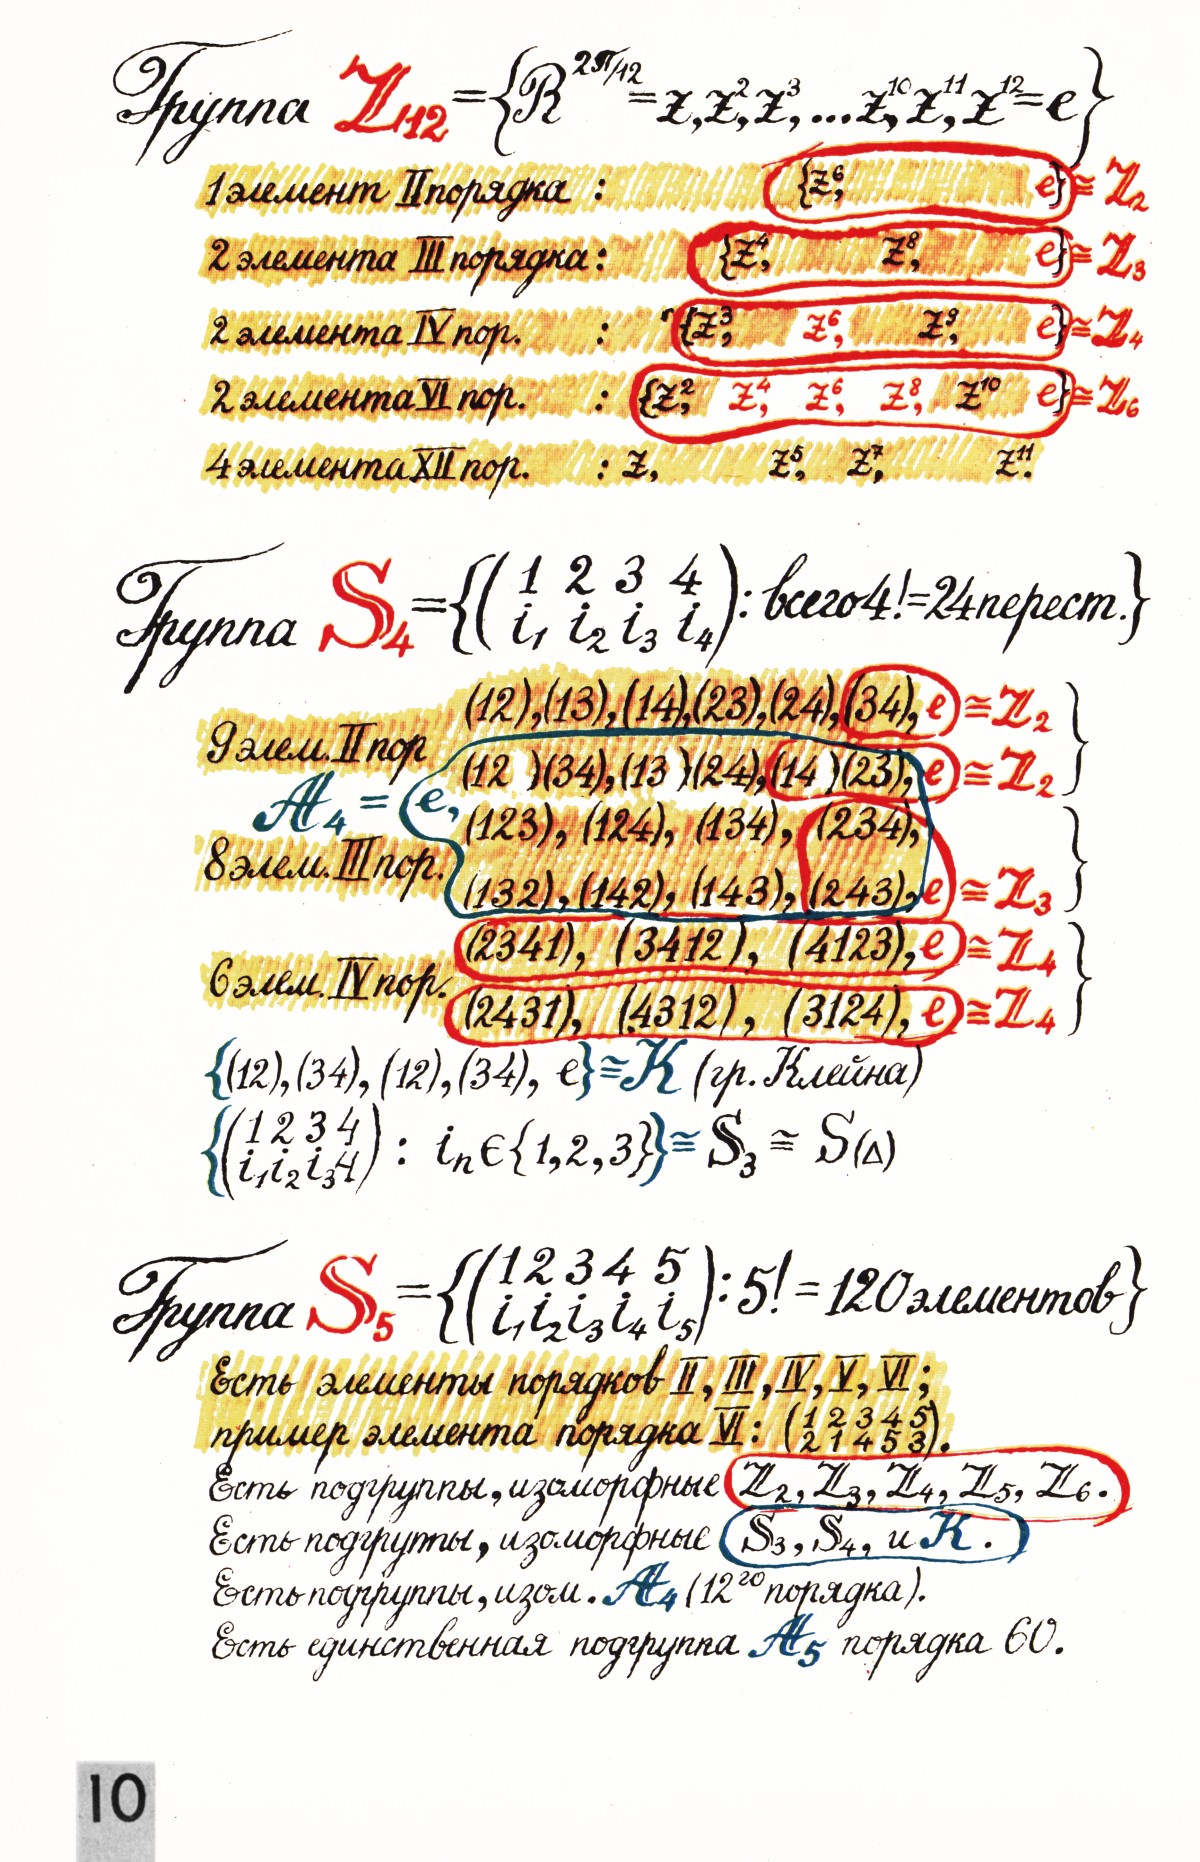 Группа Z₁₂ = {R^{2π/12} = z, z², z³, ... z¹⁰, z¹¹, z¹² = e}
1 элемент II порядка : {z⁶, e} ≅ Z₂
2 элемента III порядка : {z⁴, z⁸, e} ≅ Z₃
2 элемента IV пор. : {z³, z⁶, z⁹, e} ≅ Z₄
2 элемента VI пор. : {z², z⁴, z⁶, z⁸, z¹⁰ e} ≅ Z₆
4 элемента XII пор. : z, z⁵, z⁷, z¹¹.
Группа S₄ = {( 1 2 3 4
i₁ i₂ i₃ i₄ ) : всего 4! = 24 перест.}
(12), (13), (14), (23), (24), (34), e ≅ Z₂
9 элем. II пор
(12 )(34), (13 )(24), (14 )(23), e ≅ Z₂
A₄ = (e,
(123), (124), (134), (234),
8 элем. III пор.
(132), (142), (143), (243), e ≅ Z₃
(2341), (3412), (4123), e ≅ Z₄
6 элем. IV пор.
(2431), (4312), (3124), e ≅ Z₄
{(12), (34), (12), (34), e} ≅ K (гр. Клейна)
{( 1 2 3 4
i₁ i₂ i₃ 4 ) : iₙ ∈ {1, 2, 3}} ≅ S₃ ≅ S(Δ)
Группа S₅ = {( 1 2 3 4 5
i₁ i₂ i₃ i₄ i₅ ) : 5! = 120 элементов}
Есть элементы порядков II, III, IV, V, VI;
пример элемента порядка VI : ( 1 2 3 4 5
2 1 4 5 3 ).
Есть подгруппы, изоморфные Z₂, Z₃, Z₄, Z₅, Z₆.
Есть подгруппы, изоморфные S₃, S₄, и K.
Есть подгруппы, изом. A₄ (12го порядка).
Есть единственная подгруппа A₅ порядка 60.
10